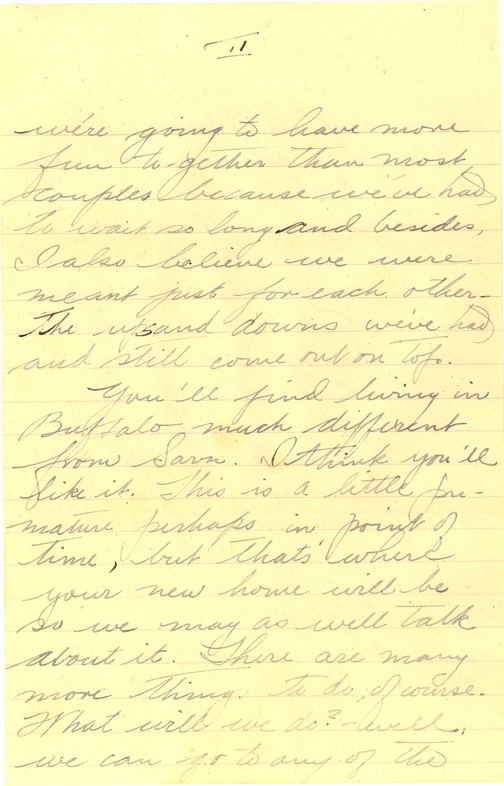 II
we're going to have more
fun to-gether than most
couples because we've had
to wait so long and besides,
I also believe we were
meant just for each other-
the ups and downs we've had
and still come out on top.
You'll find living in
Buffalo much different
from Sarn. I think you'll
like it. This is a little pre-
mature perhaps in point of
time, but thats' where
your new home will be
so we may as well talk
about it. There are many
more thing. to do, of course.
What will we do? - well,
we can go to any of the